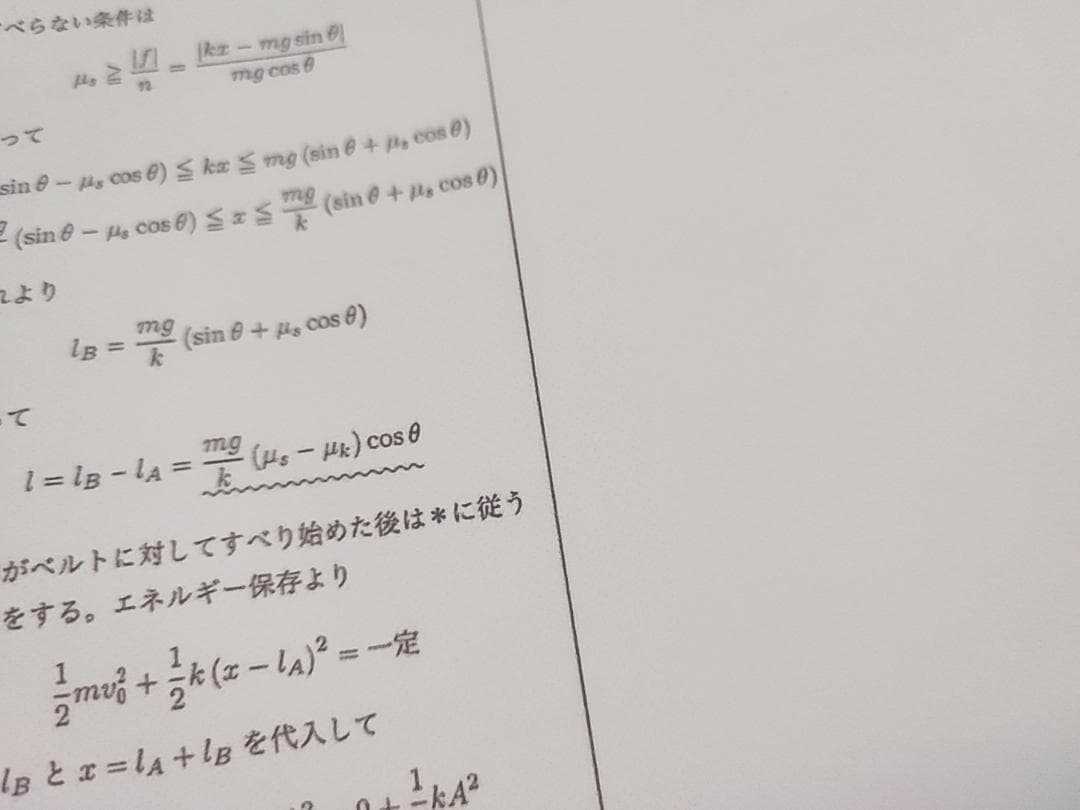 べらない条件は
μₛ ≧ |f|/n = |kx − mg sin θ|/(mg cos θ)
って
sin θ − μₛ cos θ) ≦ kx ≦ mg (sin θ + μₛ cos θ)
(sin θ − μₛ cos θ) ≦ x ≦ mg/k (sin θ + μₛ cos θ)
より
l_B = mg/k (sin θ + μₛ cos θ)
て
l = l_B − l_A = mg/k (μₛ − μₖ) cos θ
がベルトに対してすべり始めた後は*に従う
をする。エネルギー保存より
1/2 mv₀² + 1/2 k (x − l_A)² = 一定
l_B と x = l_A + l_B を代入して
0 + 1/2 kA²